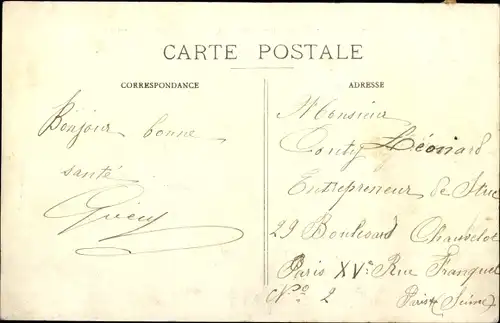 CARTE POSTALE
CORRESPONDANCE
Bonjour bonne
santé
ADRESSE
Monsieur
Conty Léonard
Entrepreneur de Stuc
29 Boulevard Chauvelot
Paris XVe Rue Franquet
No 2 Paris (Seine)